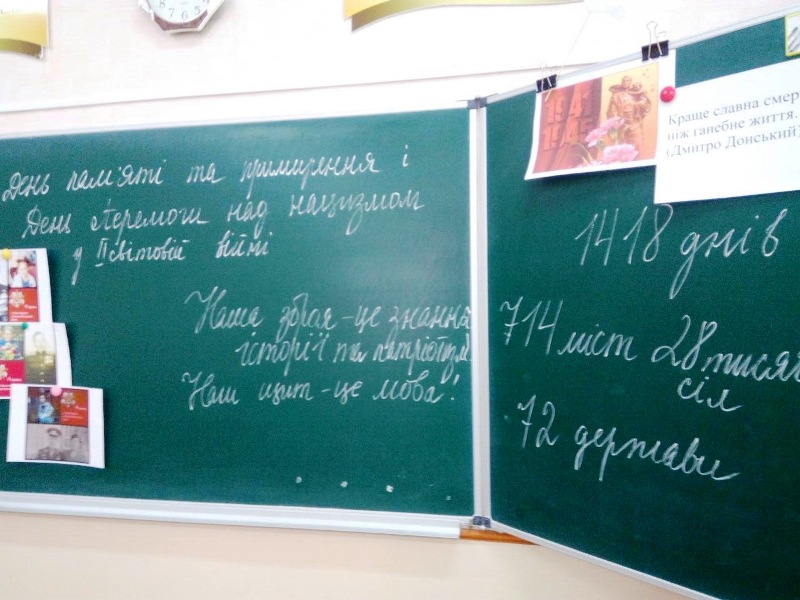 День пам'яті та примирення і
День Перемоги над нацизмом
у II світовій війні
Наша зброя - це знання
історії та патріотизм
Наш щит - це мова!
1941
1945
Краще славна смер
ніж ганебне життя.
(Дмитро Донський)
1418 днів
714 міст 28 тисяч
сіл
72 держави